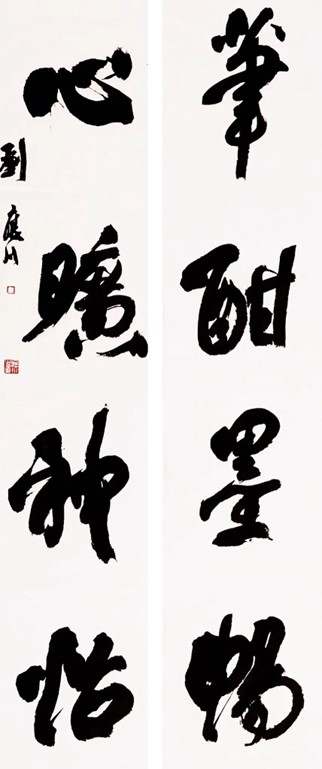 筆酣墨暢
心曠神怡
劉